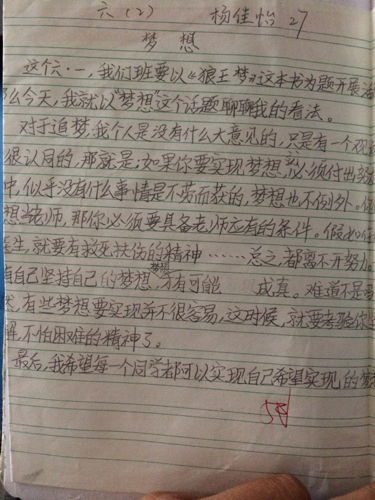 六（2） 杨佳怡 27
梦想
这个六·一，我们班要以《狼王梦》这本书为题开展
么今天，我就以“梦想”这个话题聊聊我的看法。
对于追梦，我个人是没有什么大意见的，只是有一个观
很认同的，那就是：如果你要实现梦想，必须付出
中，似乎没有什么事情是不劳而获的，梦想也不例外。
想当老师，那你必须要具备老师应有的条件。假如
医生，就要有救死扶伤的精神……总之，都离不开努力。
有自己坚持自己的梦想，梦想才有可能成真。难道不是
然，有些梦想要实现并不很容易，这时候，就要考验你
，不怕困难的精神了。
最后，我希望每一个同学都可以实现自己希望实现的梦